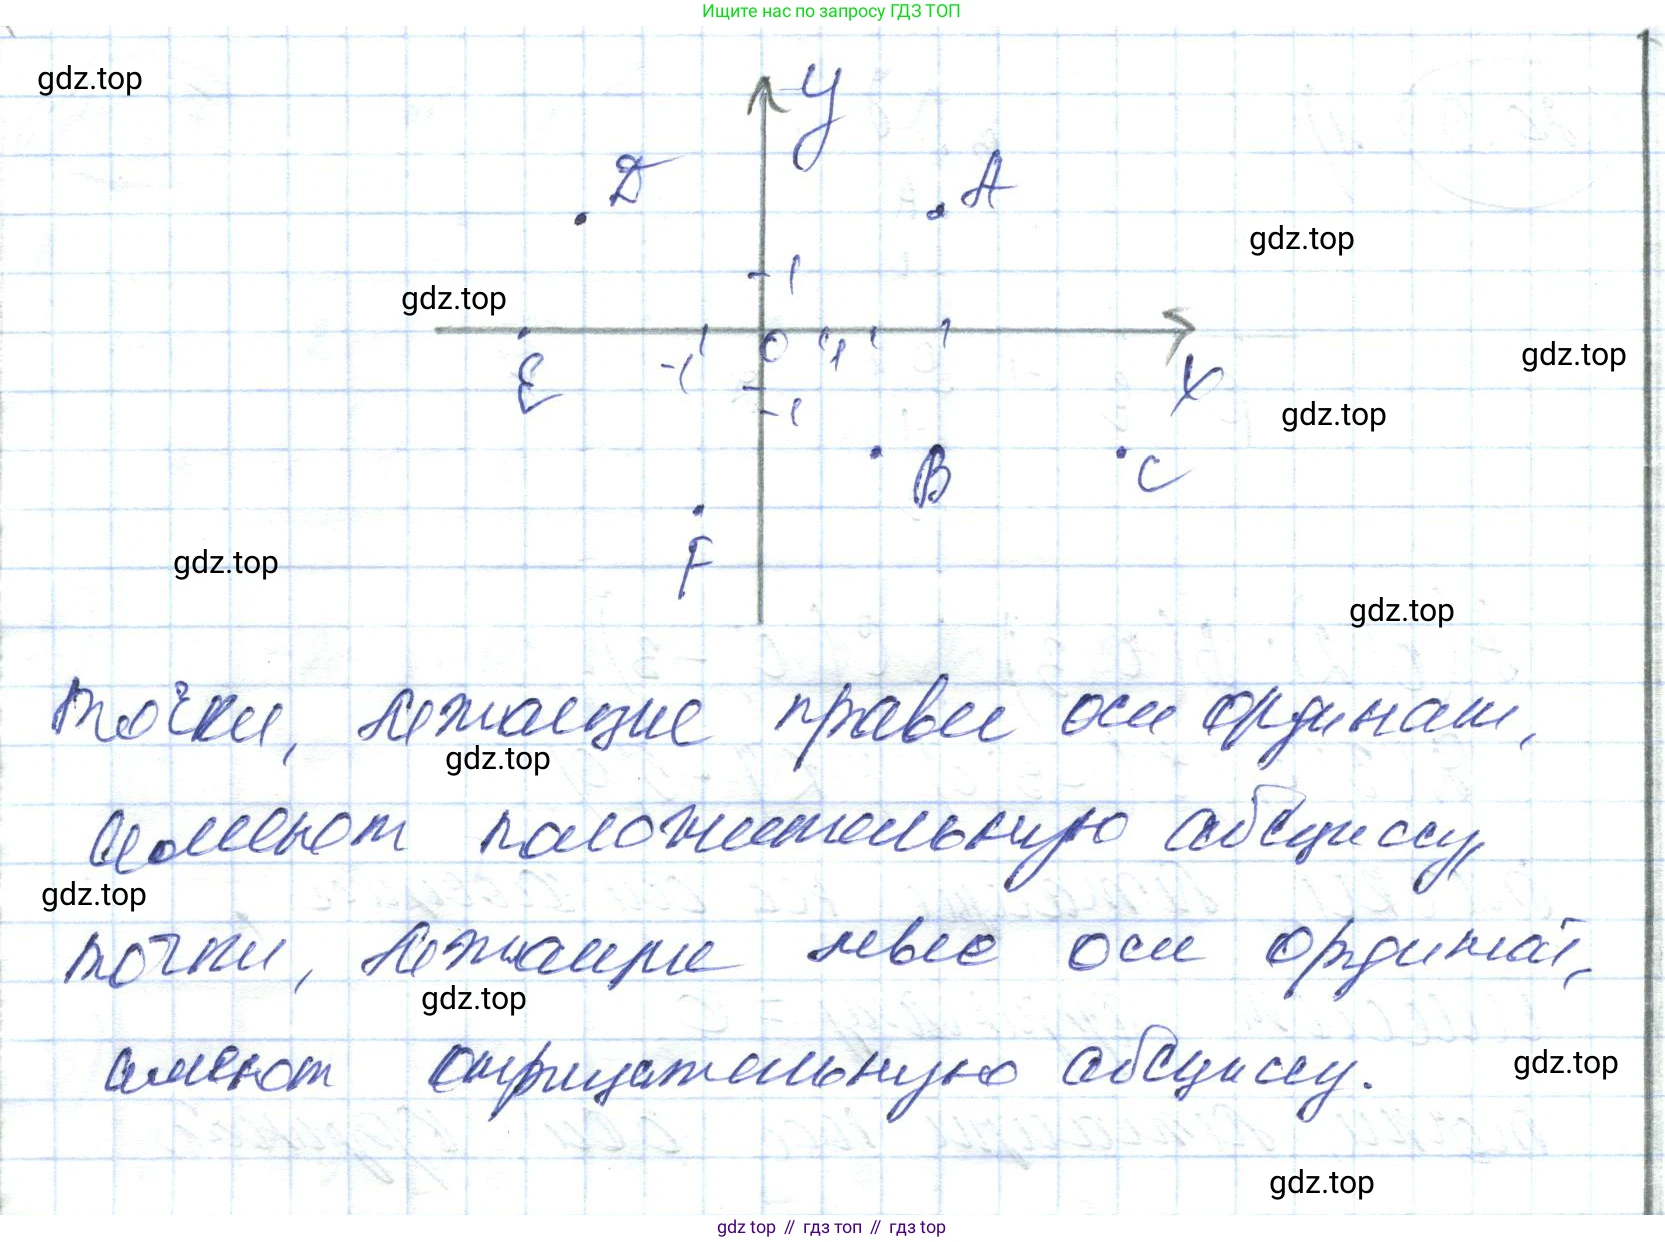 Ищите нас по запросу ГДЗ ТОП
gdz.top
y
D
A
gdz.top
1
gdz.top
-1
0
1
x
gdz.top
E
-1
gdz.top
B
C
F
gdz.top
gdz.top
точки, лежащие правее оси ординат,
gdz.top
имеют положительную абсциссу,
gdz.top
точки, лежащие левее оси ординат,
gdz.top
имеют отрицательную абсциссу.
gdz.top
gdz.top
gdz top // гдз топ // гдз top